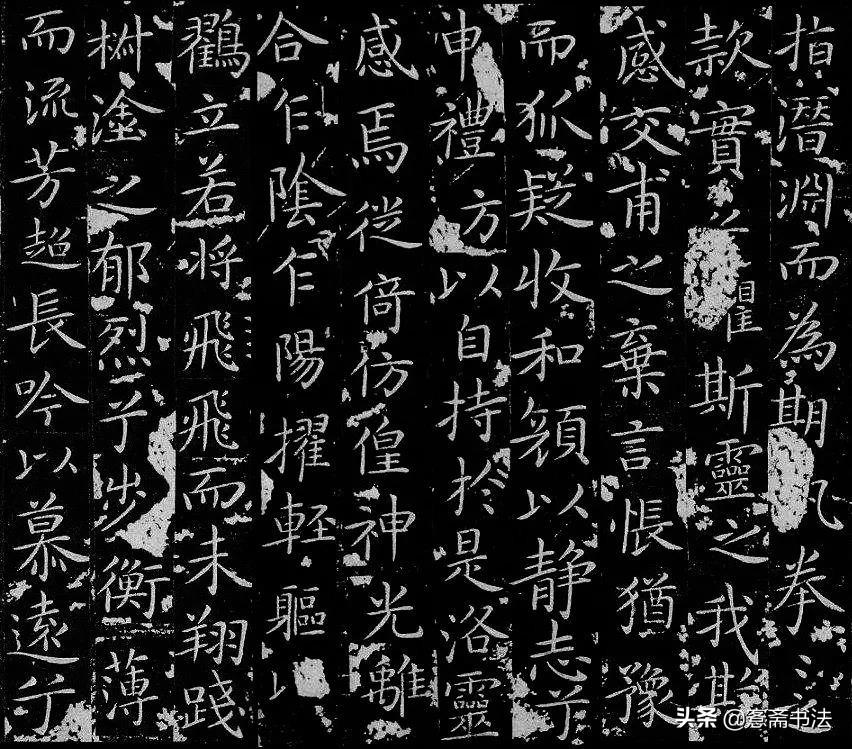 指潛淵而為期拳
款實斯靈之我欺
感交甫之棄言悵猶豫
而狐疑收和顏以静志兮
申禮方以自持於是洛靈
感焉徙倚仿偟神光離
合乍陰乍陽擢軽軀以
鸖立若将飛飛而未翔踐
椒塗之郁烈兮步衡薄
而流芳超長吟以慕遠兮
头条 @斋书法